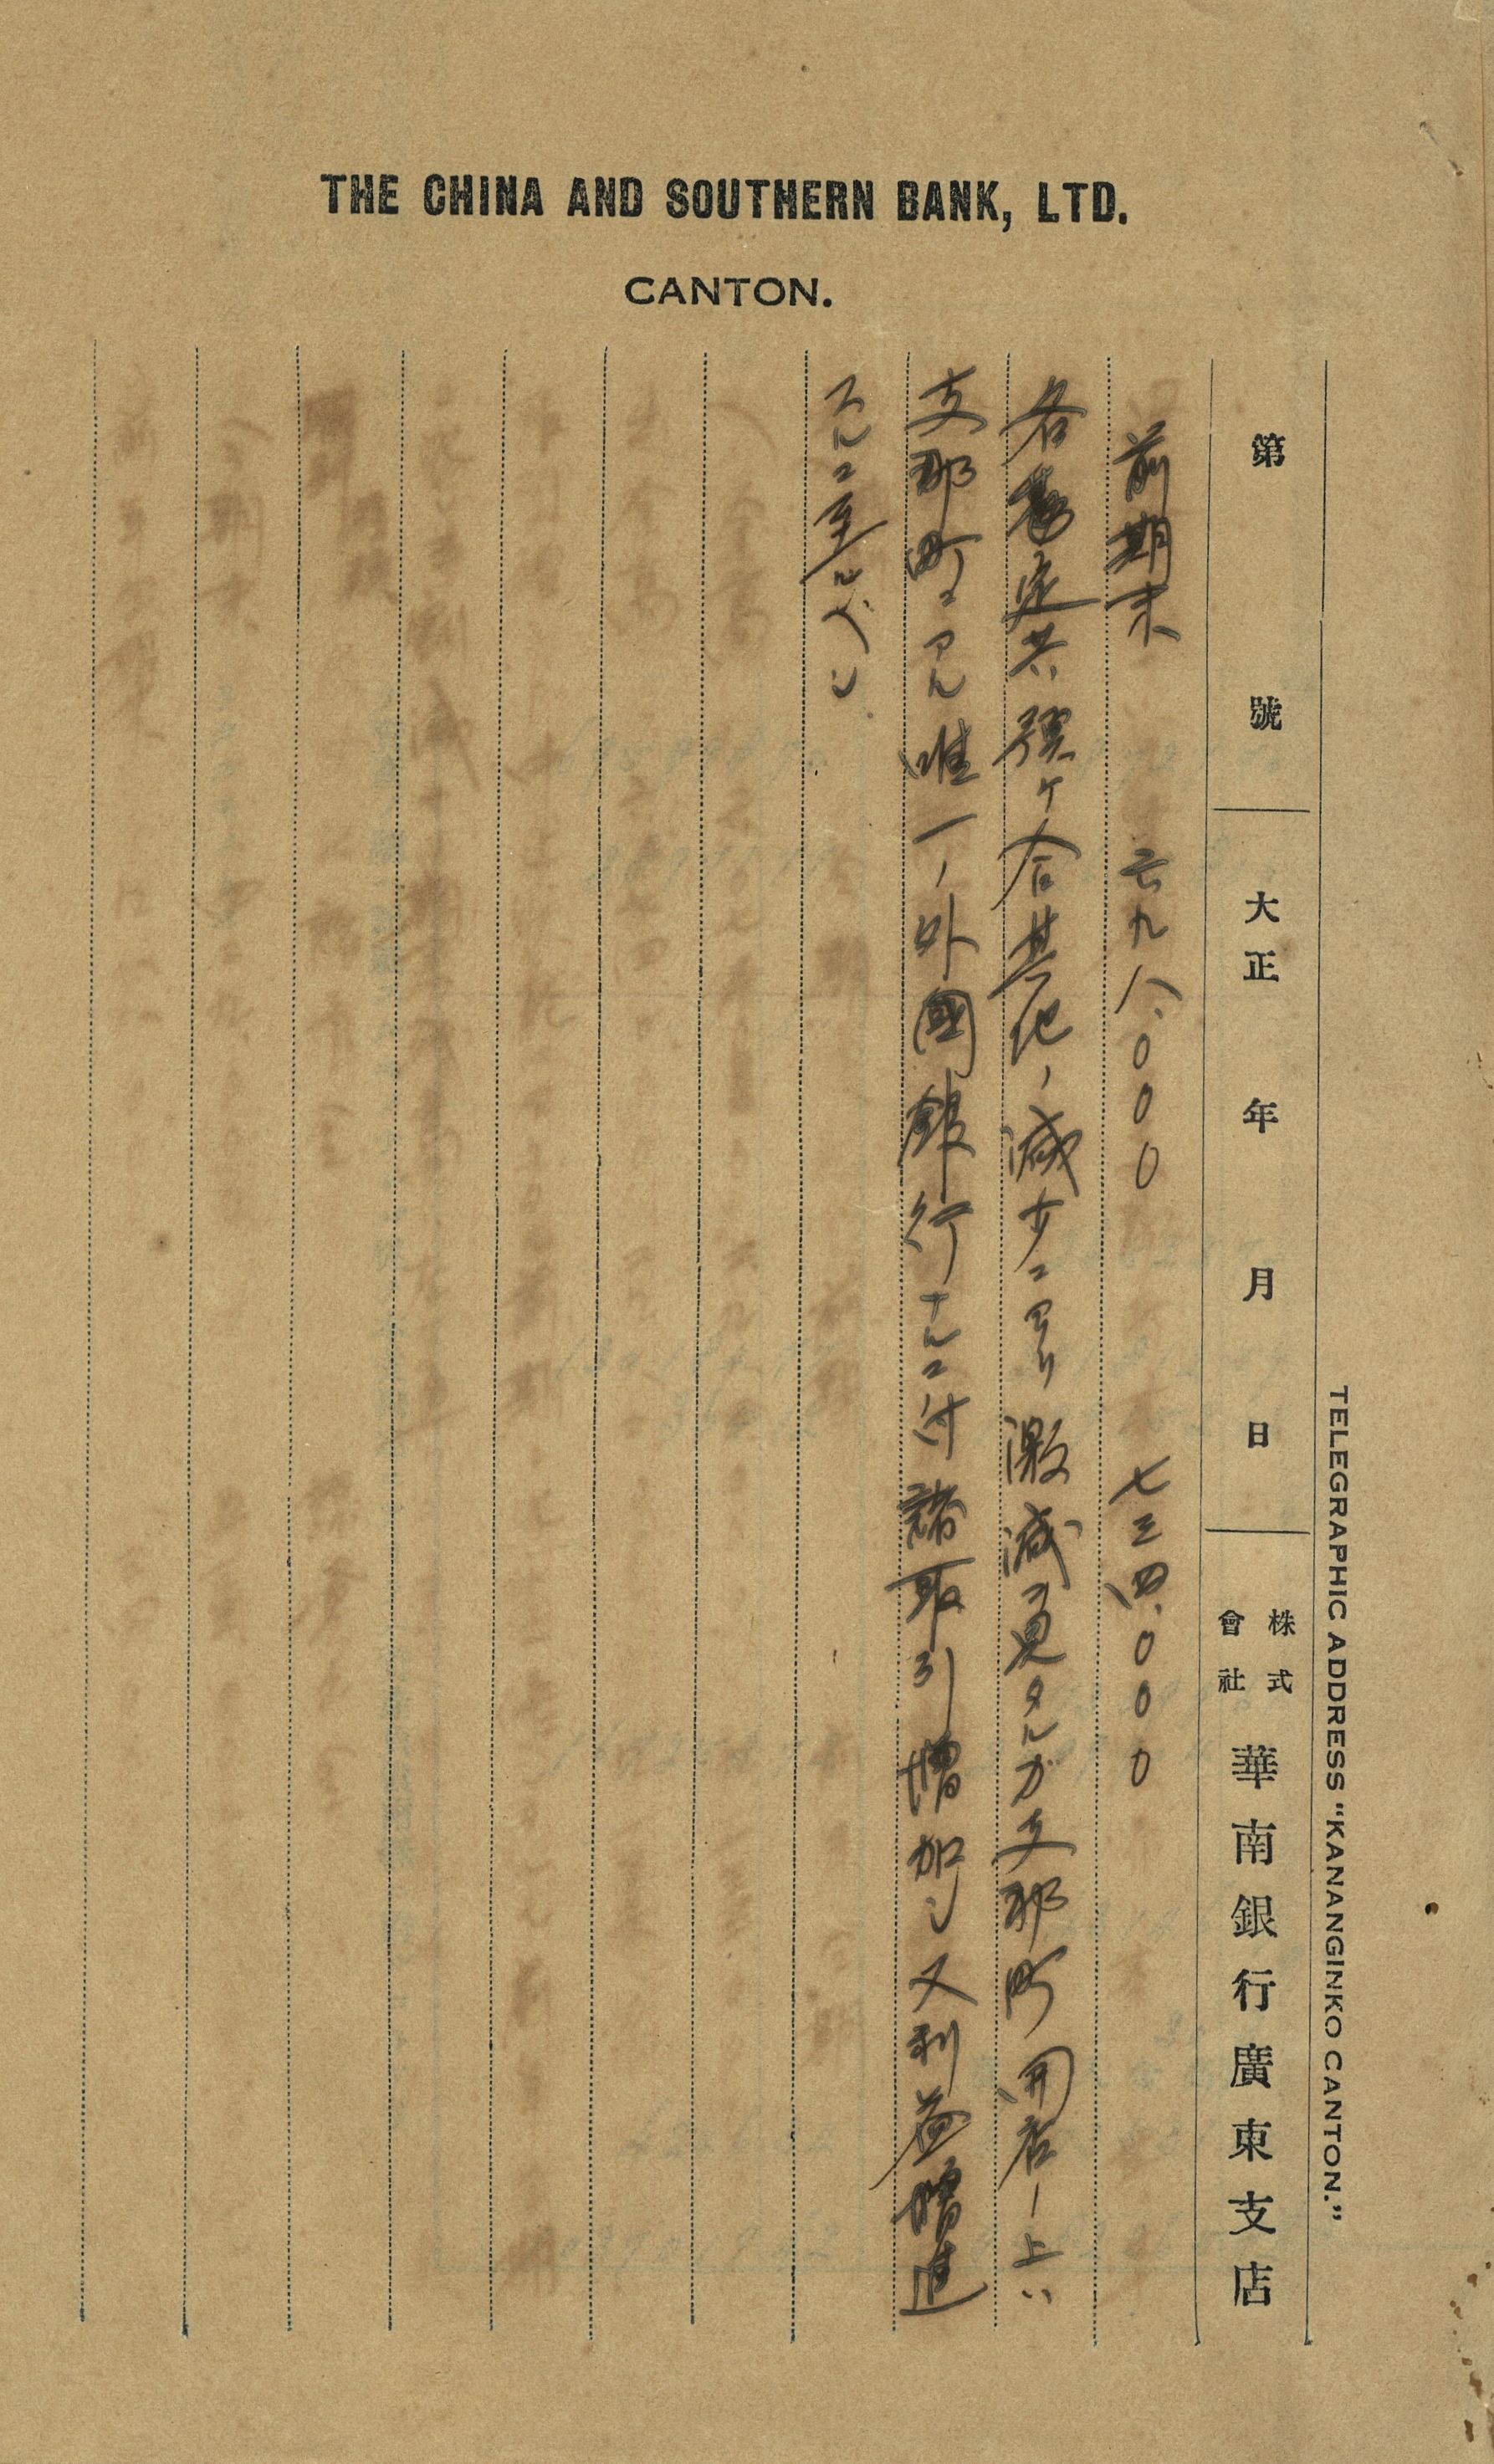 THE CHINA AND SOUTHERN BANK, LTD.
CANTON.
TELEGRAPHIC ADDRESS "KANANGINKO CANTON."
第 號 大正 年 月 日 株式會社 華南銀行廣東支店
前期末 六九八.〇〇〇 七三四.〇〇〇
各勘定共預ケ合其他ノ減少ニヨリ激減ヲ見タルガ支那町開店ノ上ハ
支那町ニアル唯一ノ外國銀行ナルニ付諸取引増加シ又利益増進
スルニ至ルベシ